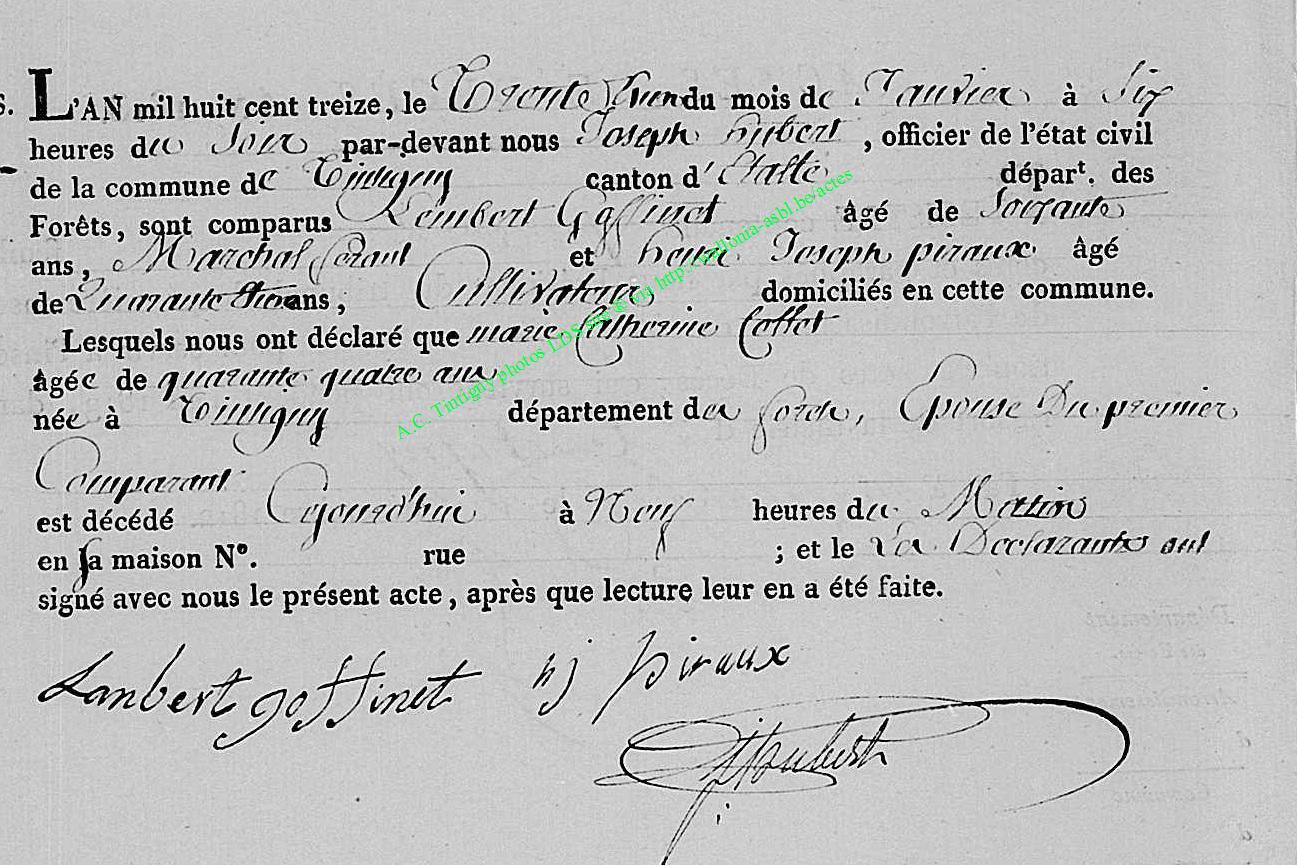 L'AN mil huit cent treize, le Trente Un du mois de Janvier à Six
heures du Soir par-devant nous Joseph hubert, officier de l'état civil
de la commune de Tintigny canton d'Etalle dépar^t. des
Forêts, sont comparus Lembert Goffinet âgé de Soixante
ans, Marchal ferant et henri Joseph piraux âgé
de Quarante ans, Cultivateur domiciliés en cette commune.
Lesquels nous ont déclaré que marie Catherine Collet
âgée de quarante quatre ans
née à Tintigny département des forets, Epouse Du premier
Comparant
est décédé Cejourd'hui à Neuf heures du Matin
en sa maison N°. rue ; et le Les Declarants ont
signé avec nous le présent acte, après que lecture leur en a été faite.
Lanbert goffinet hj piraux
JHoubert
A.C. Tintigny photos LDS site & via http://wallonia-asbl.be/actes